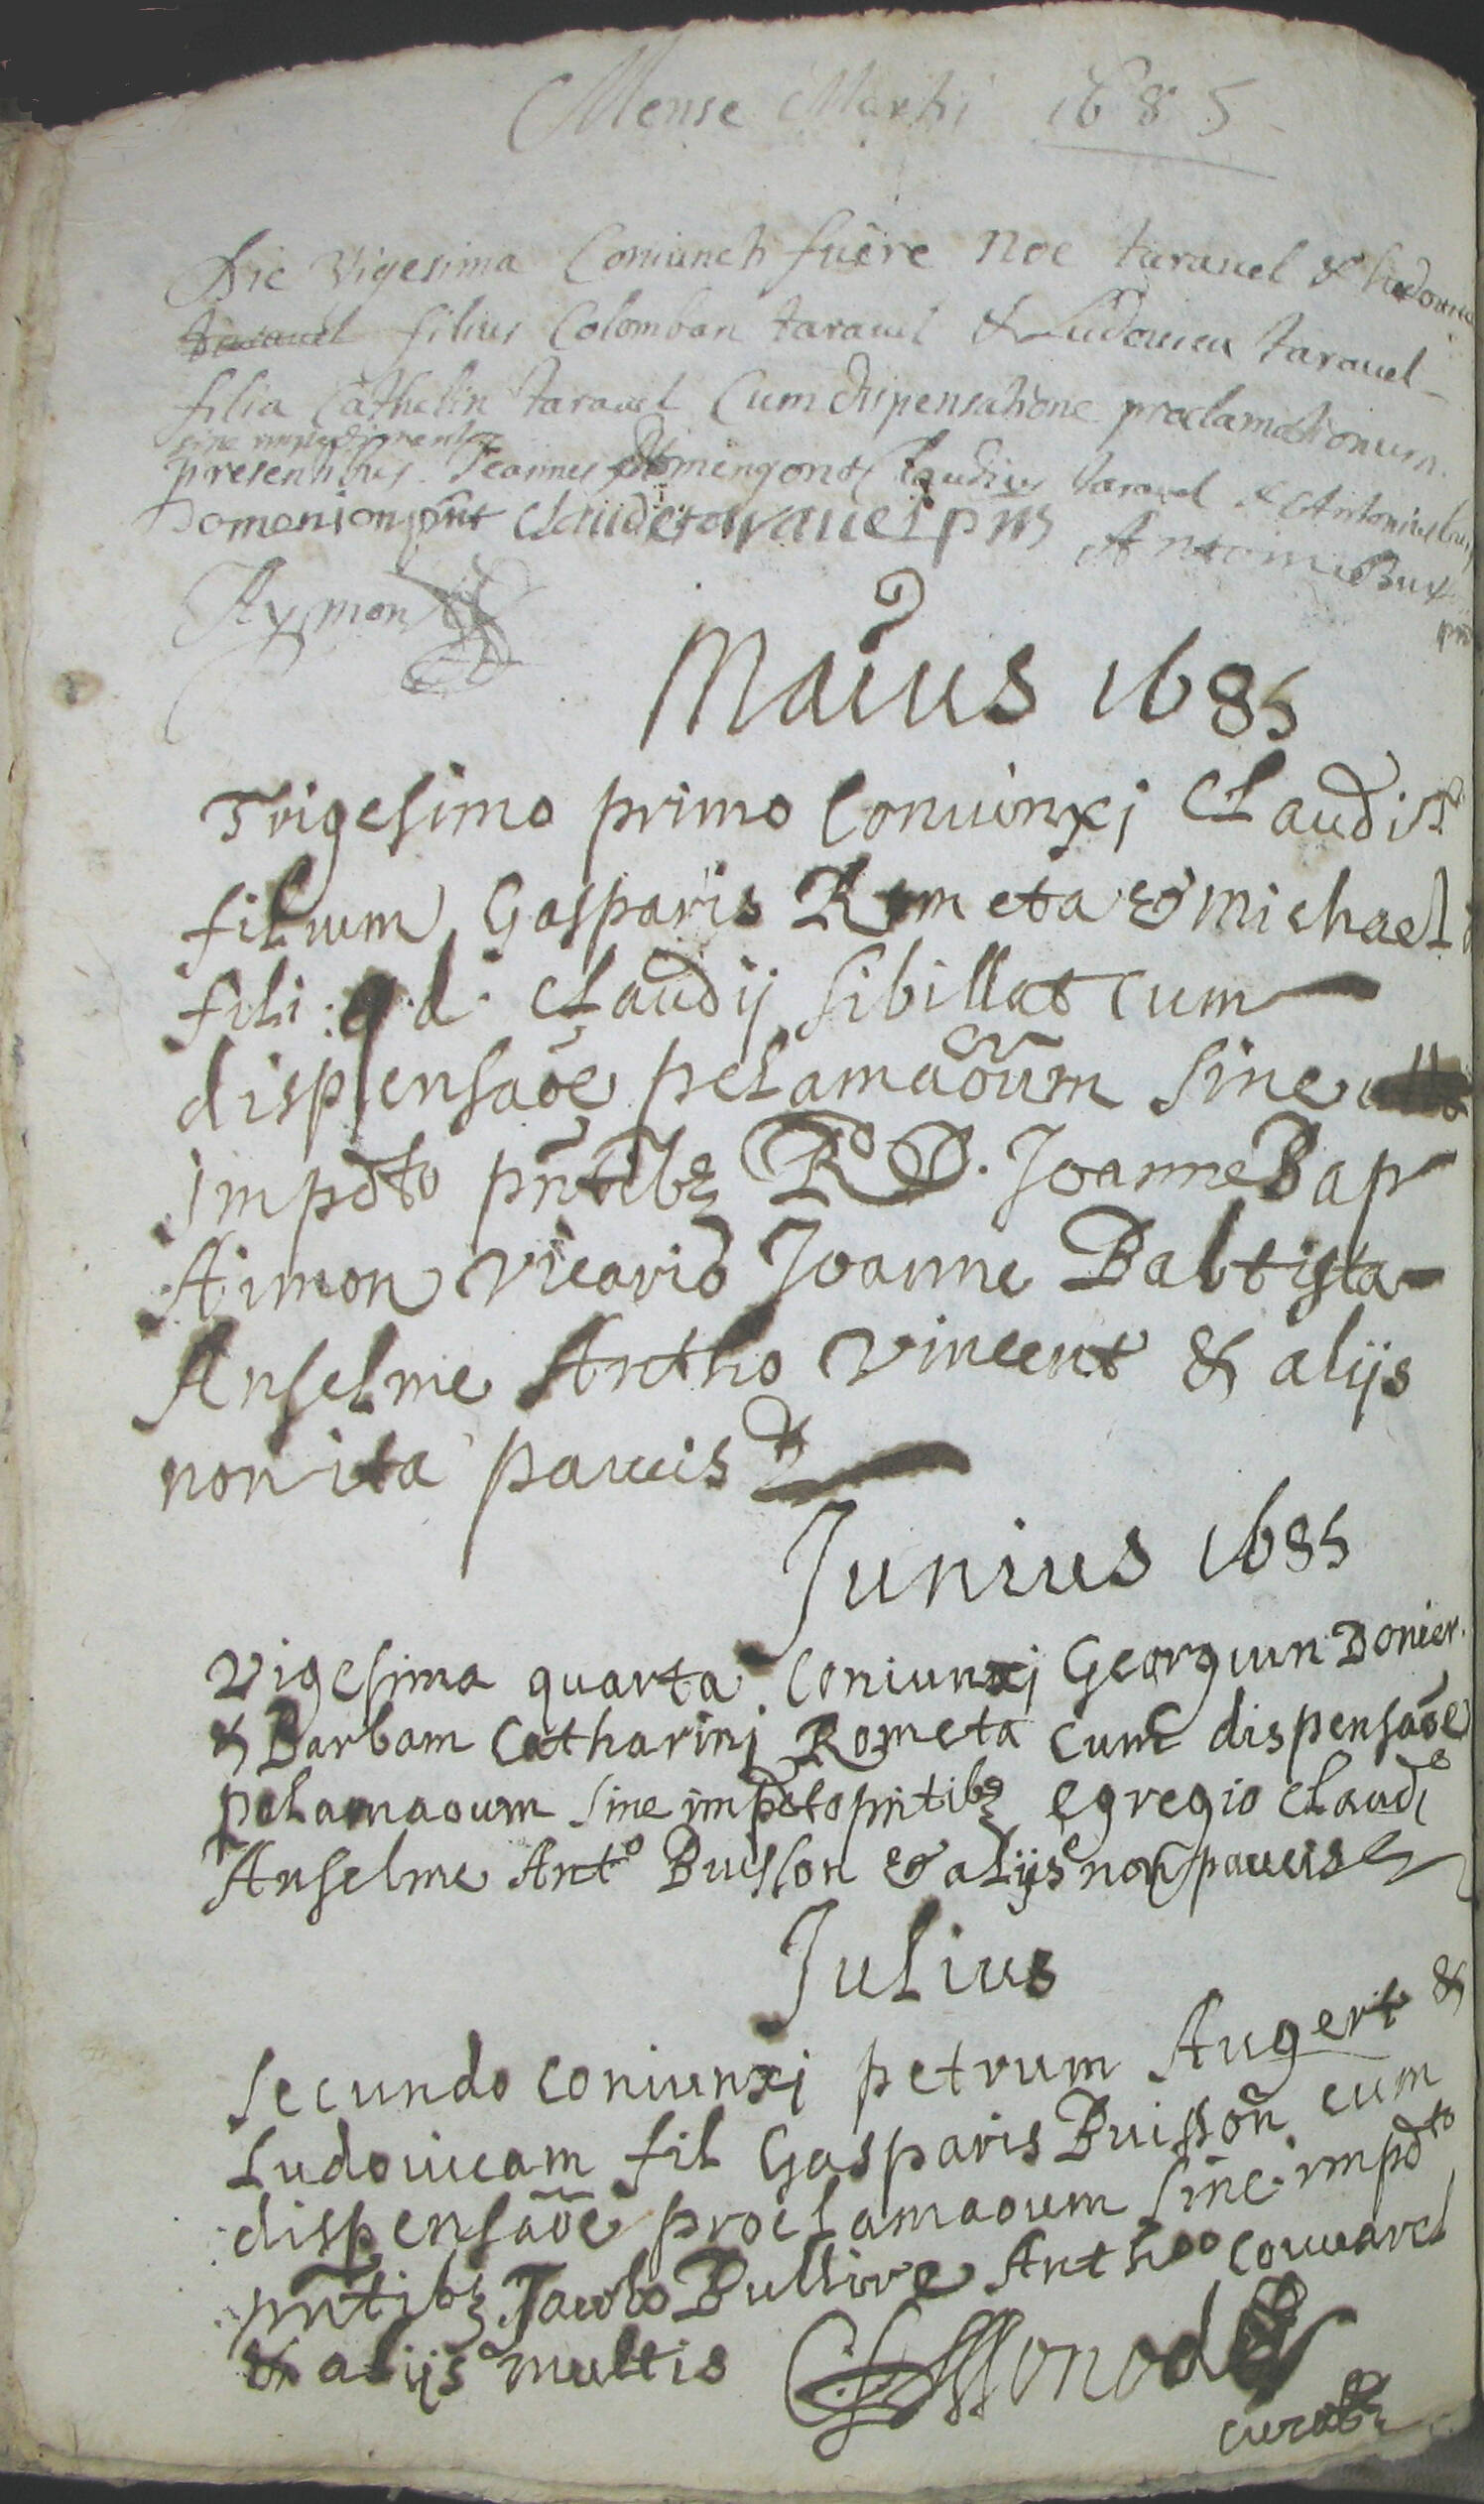 Mense Martij 1685
Die Vigesima Coniuncti fuere Noe taravel & Ludovica
taravel filius Colomban taravel & Ludovica taravel
filia Cathelin taravel Cum dispensatione proclamationum
sine impedimento
presentibus Joannes domengon Claudius taravel & Antonius
Domenion pnt claude taravel pns Antoine Buix
pnt
Aymon
Maius 1685
Trigesimo primo Coniunxi Claudiũ
filium Gasparis Rometa & Michael
fili: qd. Claudij Sibillat cum
dispensaõe pclamaõum sine
impdto pñtibz RD. Joanne Bap
Aimon vicario Joanne Babtista
Anselme Antho Vincent & alijs
non ita paucis
Junius 1685
Vigesima quarta Coniunxj Georgium Bonier
& Barbam Catharinj Rometa cum dispensaõe
pclamaoum sine impdto pñtibz egregio Claudi°
Anselme Ant° Buisson & alijs non paucis
Julius
Secundo coniunxj petrum Augert &
Ludovicam fil Gasparis Buisson cum
dispensaõe proclamaoum sine impdto
pñtibz Jacobo Bullive Anth°° Couvard
& alijs multis
curatz